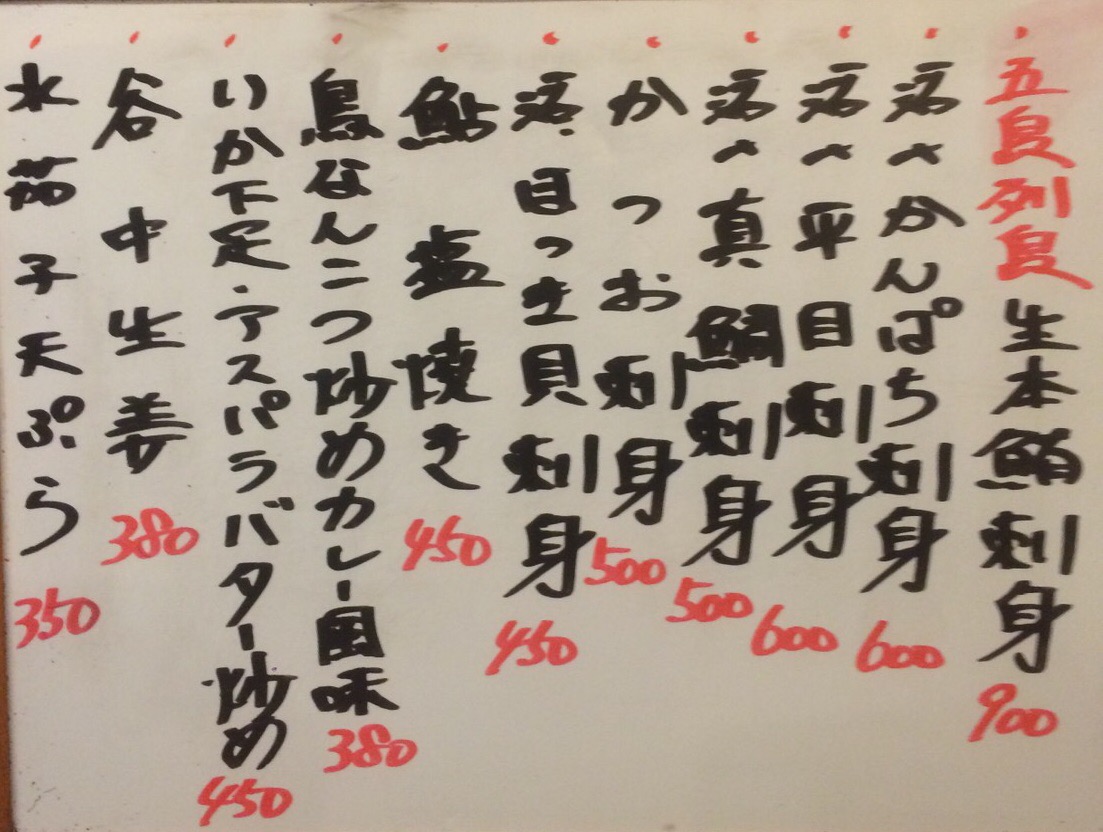 ・五島列島生本鮪刺身 900
・活〆かんぱち刺身 600
・活〆平目刺身 600
・活〆真鯛刺身 500
・かつお刺身 500
・活・ほっき貝刺身 450
・鮎塩焼き 450
・鳥なんこつ炒めカレー風味 380
・いか下足・アスパラバター炒め 450
・谷中生姜 380
・水茄子天ぷら 350